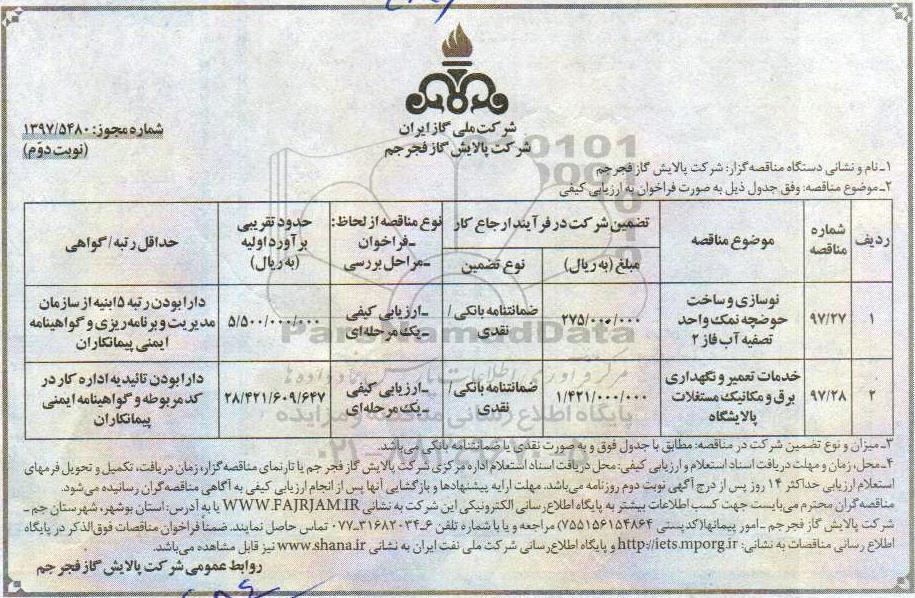 شرکت ملی گاز ایران
شرکت پالایش گاز فجر جم
شماره مجوز: ۱۳۹۷/۵۴۸۰
(نوبت دوّم)
۱ـ نام و نشانی دستگاه مناقصه گزار: شرکت پالایش گاز فجر جم
۲ـ موضوع مناقصه: وفق جدول ذیل به صورت فراخوان به ارزیابی کیفی
ردیف
شماره مناقصه
موضوع مناقصه
تضمین شرکت در فرآیند ارجاع کار
مبلغ (به ریال)
نوع تضمین
نوع مناقصه از لحاظ:
ـ فراخوان
ـ مراحل بررسی
حدود تقریبی
برآورد اولیه
(به ریال)
حداقل رتبه / گواهی
۱
۹۷/۲۷
نوسازی و ساخت
حوضچه نمک واحد
تصفیه آب فاز ۲
۲۷۵/۰۰۰/۰۰۰
ضمانتنامه بانکی /
نقدی
ـ ارزیابی کیفی
ـ یک مرحله‌ای
۵/۵۰۰/۰۰۰/۰۰۰
دارا بودن رتبه ۵ ابنیه از سازمان
مدیریت و برنامه ریزی و گواهینامه
ایمنی پیمانکاران
۲
۹۷/۲۸
خدمات تعمیر و نگهداری
برق و مکانیک مستغلات
پالایشگاه
۱/۴۲۱/۰۰۰/۰۰۰
ضمانتنامه بانکی /
نقدی
ـ ارزیابی کیفی
ـ یک مرحله‌ای
۲۸/۴۲۱/۶۰۹/۶۴۷
دارا بودن تائیدیه اداره کار در
کد مربوطه و گواهینامه ایمنی
پیمانکاران
۳ـ میزان و نوع تضمین شرکت در مناقصه: مطابق با جدول فوق و به صورت نقدی یا ضمانتنامه بانکی می‌باشد.
۴ـ محل، زمان و مهلت دریافت اسناد استعلام و ارزیابی کیفی: محل دریافت اسناد استعلام اداره مرکزی شرکت پالایش گاز فجر جم یا تارنمای مناقصه گزار، زمان دریافت، تکمیل و تحویل فرمهای
استعلام ارزیابی حداکثر ۱۴ روز پس از درج آگهی نوبت دوم روزنامه می‌باشد. مهلت ارایه پیشنهادها و بازگشایی آنها پس از انجام ارزیابی کیفی به آگاهی مناقصه گران رسانیده می‌شود.
مناقصه گران محترم می‌بایست جهت کسب اطلاعات بیشتر به پایگاه اطلاع رسانی الکترونیکی این شرکت به نشانی WWW.FAJRJAM.IR یا به آدرس: استان بوشهر، شهرستان جم ـ
شرکت پالایش گاز فجر جم ـ امور پیمانها (کدپستی ۷۵۵۱۵۶۱۵۴۸۶۴) مراجعه و یا با شماره تلفن ۶ـ۰۷۷۳۱۶۸۲۰۳۴ تماس حاصل نمایند. ضمناً فراخوان مناقصات فوق الذکر در پایگاه
اطلاع رسانی مناقصات به نشانی: http://iets.mporg.ir و پایگاه اطلاع رسانی شرکت ملی نفت ایران به نشانی www.shana.ir نیز قابل مشاهده می‌باشد.
روابط عمومی شرکت پالایش گاز فجر جم
ParsNamadData
پایگاه اطلاع رسانی مناقصه و مزایده